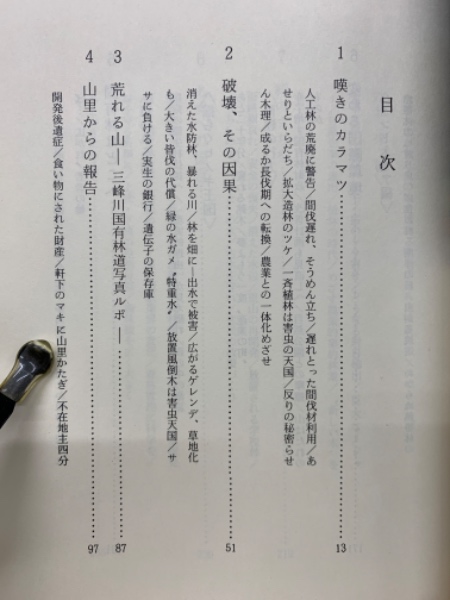 目次
1 嘆きのカラマツ……………13
人工林の荒廃に警告/間伐遅れ、そうめん立ち/遅れとった間伐材利用/あ
せりといらだち/拡大造林のツケ/一斉植林は害虫の天国/反りの秘密らせ
ん木理/成るか長伐期への転換/農業との一体化めざせ
2 破壊、その因果……………51
消えた水防林、暴れる川/林を畑に―出水で被害/広がるゲレンデ、草地化
も/大きい皆伐の代償/緑の水ガメ〝特重水〟/放置風倒木は害虫天国/サ
サに負ける/実生の銀行/遺伝子の保存庫
3 荒れる山―三峰川国有林道写真ルポ―……………87
4 山里からの報告……………97
開発後遺症/食い物にされた財産/軒下のマキに山里かたぎ/不在地主四分